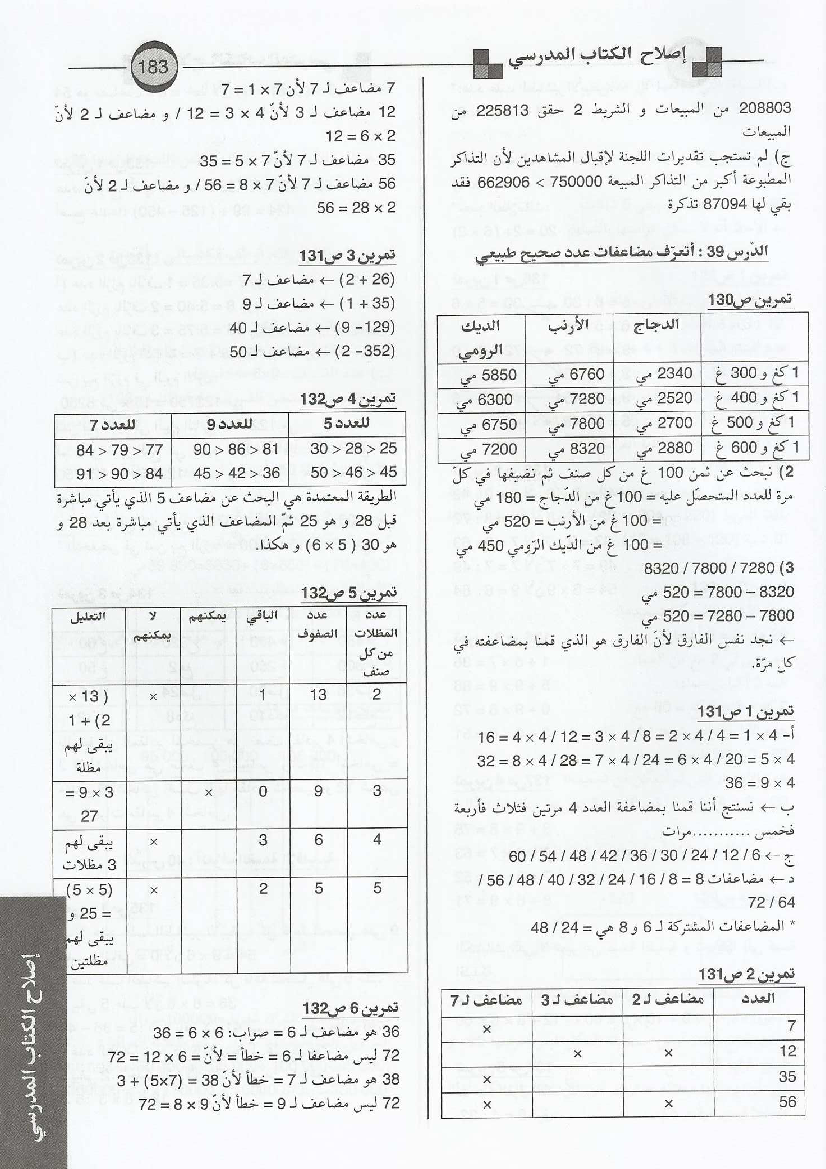 إصلاح الكتاب المدرسي
183
208803 من المبيعات و الشريط 2 حقق 225813 من
المبيعات
ج) لم تستجب تقديرات اللجنة لإقبال المشاهدين لأن التذاكر
المطبوعة أكبر من التذاكر المبيعة 750000 > 662906 فقد
بقي لها 87094 تذكرة
الدّرس 39 : أتعرّف مضاعفات عدد صحيح طبيعي
تمرين ص130
الدجاج | الأرنب | الديك الرومي
1 كغ و 300 غ | 2340 مي | 6760 مي | 5850 مي
1 كغ و 400 غ | 2520 مي | 7280 مي | 6300 مي
1 كغ و 500 غ | 2700 مي | 7800 مي | 6750 مي
1 كغ و 600 غ | 2880 مي | 8320 مي | 7200 مي
2) نبحث عن ثمن 100 غ من كل صنف ثم نضيفها في كلّ
مرة للعدد المتحصل عليه = 100 غ من الدّجاج = 180 مي
= 100 غ من الأرنب = 520 مي
= 100 غ من الدّيك الرّومي 450 مي
3) 7280 / 7800 / 8320
8320 – 7800 = 520 مي
7800 – 7280 = 520 مي
← نجد نفس الفارق لأنّ الفارق هو الذي قمنا بمضاعفته في
كل مرّة.
تمرين 1 ص131
أ- 4 x 1 = 4 / 4 x 2 = 8 / 4 x 3 = 12 / 4 x 4 = 16
4 x 5 = 20 / 4 x 6 = 24 / 4 x 7 = 28 / 4 x 8 = 32
4 x 9 = 36
ب ← نستنتج أننا قمنا بمضاعفة العدد 4 مرتين فثلاث فأربعة
فخمس ...........مرات
ج -> 6 / 12 / 24 / 30 / 36 / 42 / 48 / 54 / 60
د ← مضاعفات 8 = 8 / 16 / 24 / 32 / 40 / 48 / 56 /
64 / 72
* المضاعفات المشتركة لـ 6 و 8 هي = 24 / 48
تمرين 2 ص131
العدد | مضاعف لـ 2 | مضاعف لـ 3 | مضاعف لـ 7
7 | | | x
12 | x | x |
35 | | | x
56 | x | | x
7 مضاعف لـ 7 لأن 7 x 1 = 7
12 مضاعف لـ 3 لأنّ 4 x 3 = 12 / و مضاعف لـ 2 لأنّ
2 x 6 = 12
35 مضاعف لـ 7 لأنّ 7 x 5 = 35
56 مضاعف لـ 7 لأنّ 7 x 8 = 56 / و مضاعف لـ 2 لأنّ
2 x 28 = 56
تمرين 3 ص131
(26 + 2) ← مضاعف لـ 7
(35 + 1) ← مضاعف لـ 9
(129- 9) ← مضاعف لـ 40
(352- 2) ← مضاعف لـ 50
تمرين 4 ص132
للعدد 5 | للعدد 9 | للعدد 7
25 < 28 < 30 | 81 < 86 < 90 | 77 < 79 < 84
45 < 46 < 50 | 36 < 42 < 45 | 84 < 90 < 91
الطريقة المعتمدة هي البحث عن مضاعف 5 الذي يأتي مباشرة
قبل 28 و هو 25 ثمّ المضاعف الذي يأتي مباشرة بعد 28 و
هو 30 ( 5 x 6) و هكذا.
تمرين 5 ص132
عدد المظلات من كل صنف | عدد الصفوف | الباقي | يمكنهم | لا يمكنهم | التعليل
2 | 13 | 1 | | x | ( 13 x 2) + 1 يبقى لهم مظلة
3 | 9 | 0 | x | | 3 x 9 = 27
4 | 6 | 3 | | x | يبقى لهم 3 مظلات
5 | 5 | 2 | | x | (5 x 5) = 25 و يبقى لهم مظلتين
تمرين 6 ص132
36 هو مضاعف لـ 6 = صواب: 6 x 6 = 36
72 ليس مضاعفا لـ 6 = خطأ = لأنّ = 6 x 12 = 72
38 هو مضاعف لـ 7 = خطأ لأنّ 38 = (5x7) + 3
72 ليس مضاعف لـ 9 = خطأ لأنّ 9 x 8 = 72
إصلاح الكتاب المدرسي